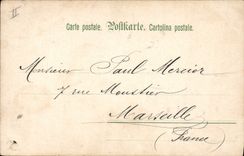 II
Carte postale. Postkarte. Cartolina postale.
Monsieur Paul Mercier
7 rue Moustier
Marseille
(France)